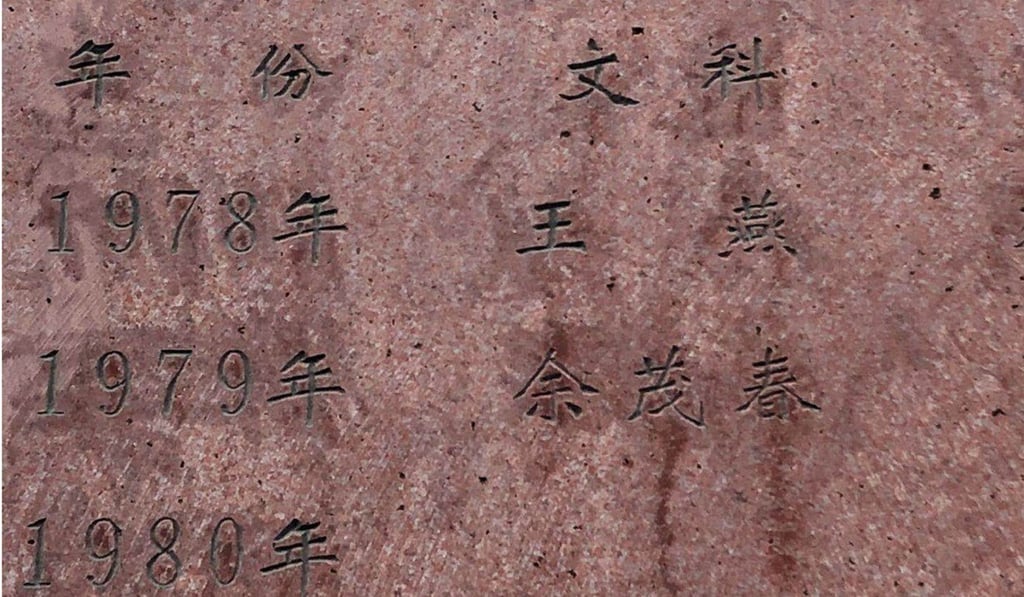 年份 文科
1978年 王燕
1979年 余茂春
1980年